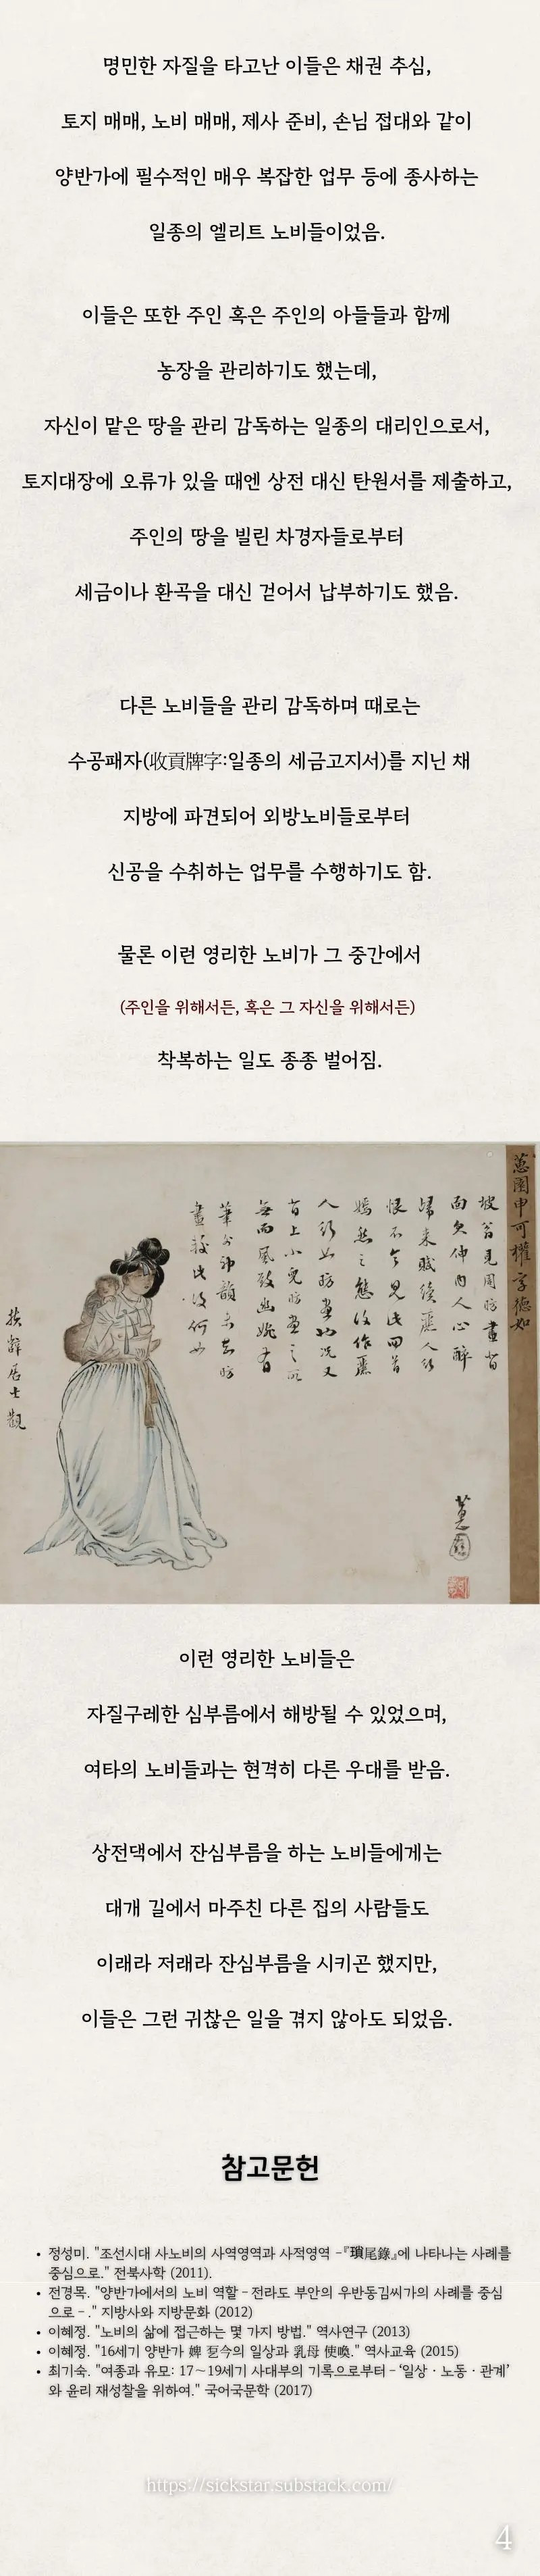 명민한 자질을 타고난 이들은 채권 추심,
토지 매매, 노비 매매, 제사 준비, 손님 접대와 같이
양반가에 필수적인 매우 복잡한 업무 등에 종사하는
일종의 엘리트 노비들이었음.
이들은 또한 주인 혹은 주인의 아들들과 함께
농장을 관리하기도 했는데,
자신이 맡은 땅을 관리 감독하는 일종의 대리인으로서,
토지대장에 오류가 있을 때엔 상전 대신 탄원서를 제출하고,
주인의 땅을 빌린 차경자들로부터
세금이나 환곡을 대신 걷어서 납부하기도 했음.
다른 노비들을 관리 감독하며 때로는
수공패자(收貢牌字:일종의 세금고지서)를 지닌 채
지방에 파견되어 외방노비들로부터
신공을 수취하는 업무를 수행하기도 함.
물론 이런 영리한 노비가 그 중간에서
(주인을 위해서든, 혹은 그 자신을 위해서든)
착복하는 일도 종종 벌어짐.
蕙園申可權字德如
坡翁見周昉畫背
面欠伸內人心醉
歸來賦續麗人行
恨不令見此回首
嫣然之態復作麗
人行
蕙園
扶辭居士觀
이런 영리한 노비들은
자질구레한 심부름에서 해방될 수 있었으며,
여타의 노비들과는 현격히 다른 우대를 받음.
상전댁에서 잔심부름을 하는 노비들에게는
대개 길에서 마주친 다른 집의 사람들도
이래라 저래라 잔심부름을 시키곤 했지만,
이들은 그런 귀찮은 일을 겪지 않아도 되었음.
참고문헌
• 정성미. "조선시대 사노비의 사역영역과 사적영역 -『瑣尾錄』에 나타나는 사례를
중심으로." 전북사학 (2011).
• 전경목. "양반가에서의 노비 역할 - 전라도 부안의 우반동김씨가의 사례를 중심
으로 - ." 지방사와 지방문화 (2012)
• 이혜정. "노비의 삶에 접근하는 몇 가지 방법." 역사연구 (2013)
• 이혜정. "16세기 양반가 婢 㐚今의 일상과 乳母 使喚." 역사교육 (2015)
• 최기숙. "여종과 유모: 17～19세기 사대부의 기록으로부터 - '일상 · 노동 · 관계'
와 윤리 재성찰을 위하여." 국어국문학 (2017)
https://sickstar.substack.com/
4